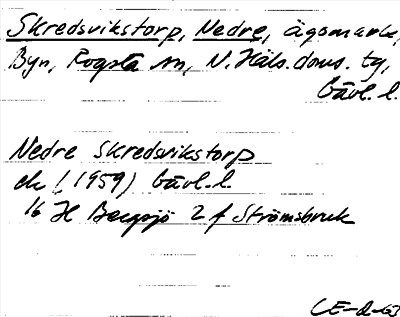 Skredsvikstorp, Nedre, ägomark,
Byn, Rogsta sn, N. Häls. doms. tg,
Gävl. l.
Nedre Skredsvikstorp
ek (1959) Gävl. l.
16 H Bergsjö 2 f Strömsbruk
CE-d-63